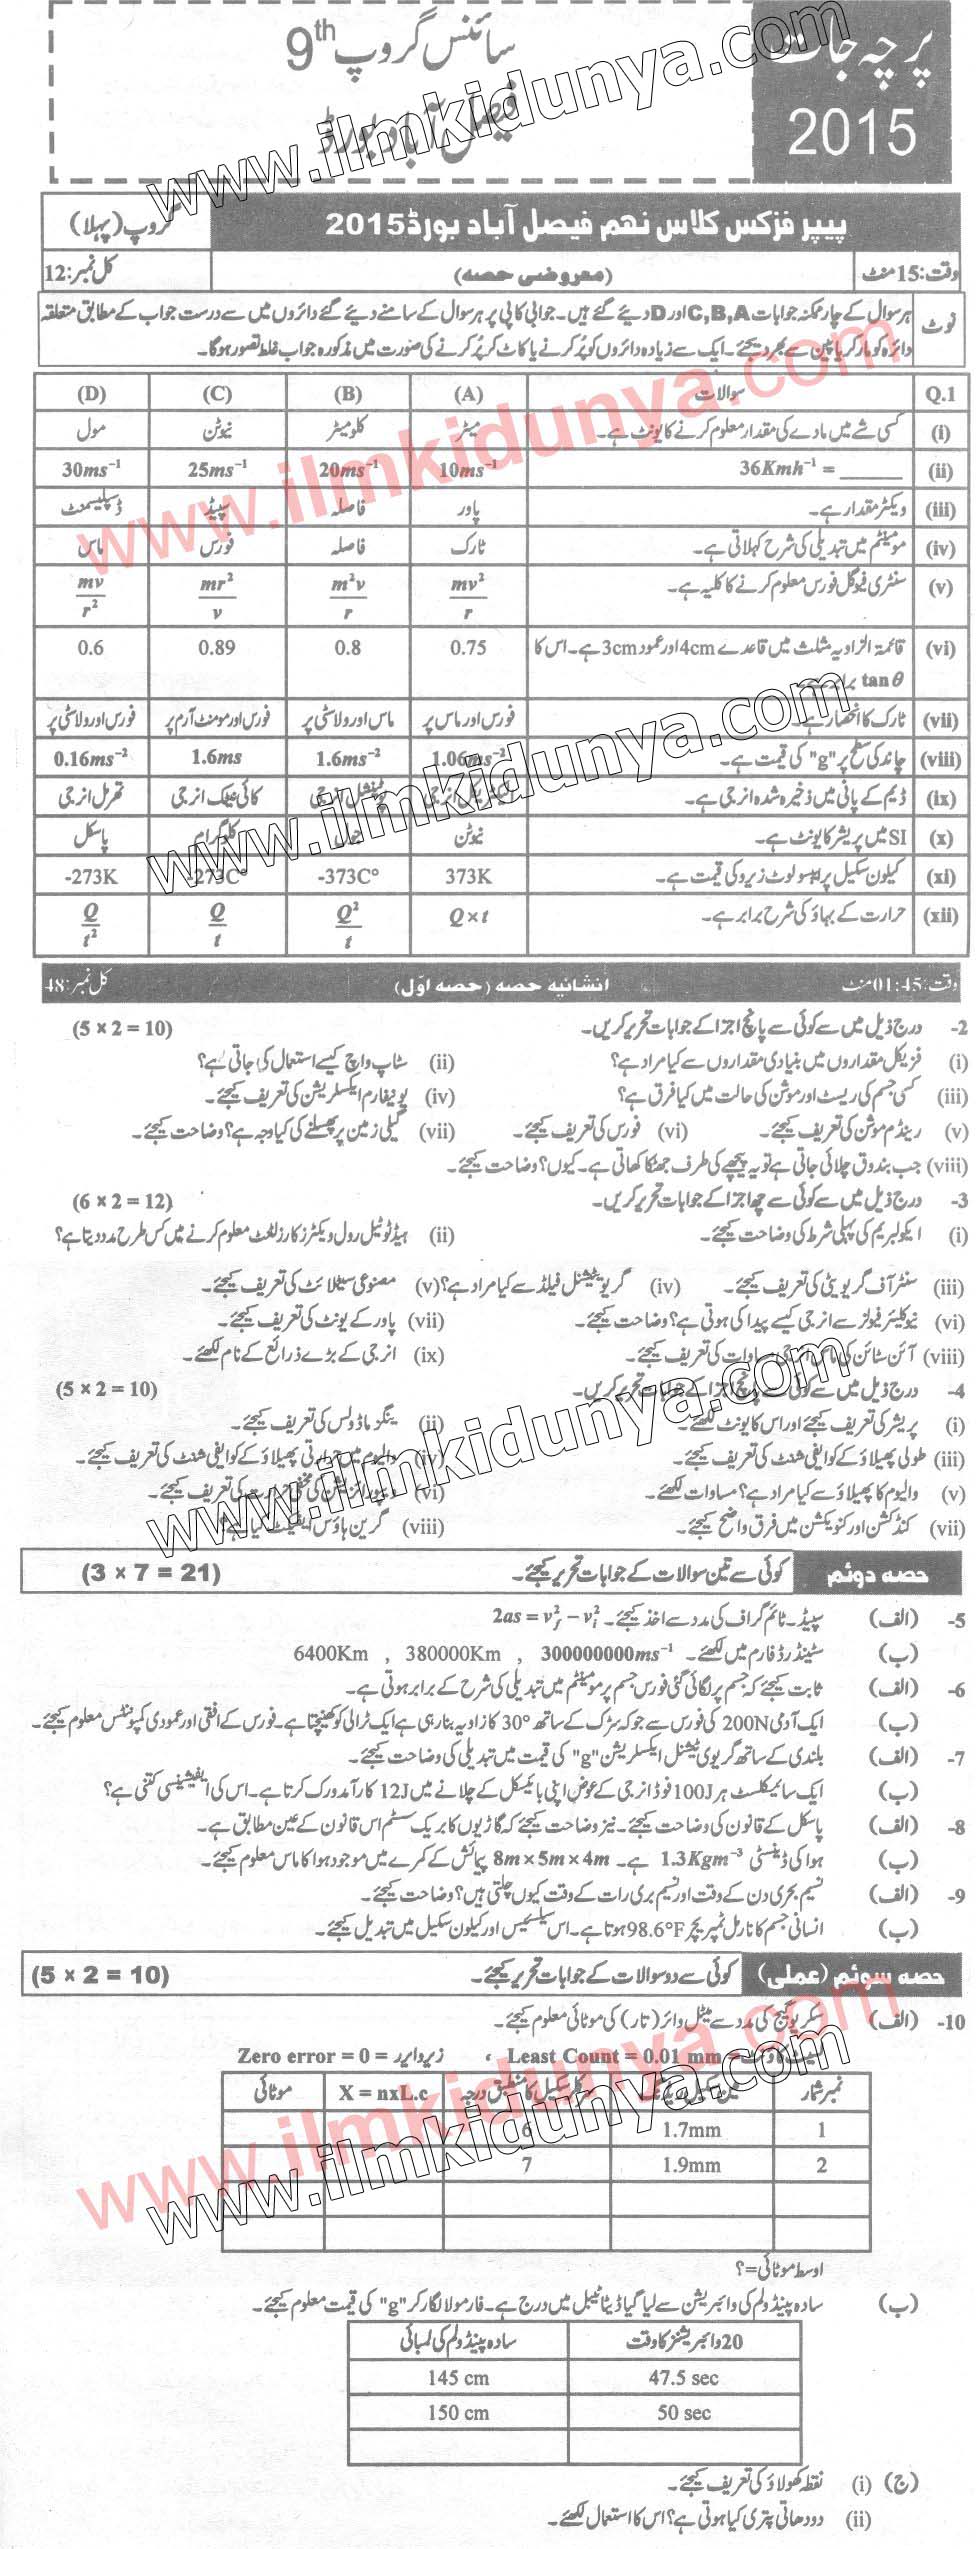 پرچہ جات
2015
سائنس گروپ 9th
فیصل آباد بورڈ
www.ilmkidunya.com
پیپر فزکس کلاس نہم فیصل آباد بورڈ 2015 گروپ (پہلا)
وقت: 15 منٹ (معروضی حصہ) کل نمبر: 12
نوٹ ہر سوال کے چار ممکنہ جوابات C,B,A اور D دیئے گئے ہیں۔ جوابی کاپی پر ہر سوال کے سامنے دیئے گئے دائروں میں سے درست جواب کے مطابق متعلقہ
دائرہ کو مارکر یا پین سے بھر دیجئے۔ ایک سے زیادہ دائروں کو پُر کرنے یا کاٹ کر پُر کرنے کی صورت میں مذکورہ جواب غلط تصور ہوگا۔
Q.1 سوالات (A) (B) (C) (D)
(i) کسی شے میں مادے کی مقدار معلوم کرنے کا یونٹ ہے۔ میٹر کلومیٹر نیوٹن مول
(ii) 36Kmh⁻¹ = ______ 10ms⁻¹ 20ms⁻¹ 25ms⁻¹ 30ms⁻¹
(iii) ویکٹر مقدار ہے۔ پاور فاصلہ سپیڈ ڈسپلیسمنٹ
(iv) مومینٹم میں تبدیلی کی شرح کہلاتی ہے۔ ٹارک فاصلہ فورس ماس
(v) سنٹری فیوگل فورس معلوم کرنے کا کلیہ ہے۔ mv²/r m²v/r mr²/v mv/r²
(vi) قائمۃ الزاویہ مثلث میں قاعدے 4cm اور عمود 3cm ہے۔ اس کا 0.75 0.8 0.89 0.6
tanθ برابر ہے۔
(vii) ٹارک کا انحصار ہے۔ فورس اور ماس پر ماس اور ولاسٹی پر فورس اور مومنٹ آرم پر فورس اور ولاسٹی پر
(viii) چاند کی سطح پر "g" کی قیمت ہے۔ 1.06ms⁻² 1.6ms⁻² 1.6ms 0.16ms⁻²
(ix) ڈیم کے پانی میں ذخیرہ شدہ انرجی ہے۔ الیکٹریکل انرجی پوٹینشل انرجی کائی نیٹک انرجی تھرمل انرجی
(x) SI میں پریشر کا یونٹ ہے۔ نیوٹن جول کلوگرام پاسکل
(xi) کیلون سکیل پر ابسولوٹ زیرو کی قیمت ہے۔ 373K -373C° -273C° -273K
(xii) حرارت کے بہاؤ کی شرح برابر ہے۔ Q×t Q²/t Q/t Q/t²
وقت: 01:45 منٹ انشائیہ حصہ (حصہ اوّل) کل نمبر: 48
2- درج ذیل میں سے کوئی سے پانچ اجزا کے جوابات تحریر کریں۔ (5 × 2 = 10)
(i) فزیکل مقداروں میں بنیادی مقداروں سے کیا مراد ہے؟ (ii) سٹاپ واچ کیسے استعمال کی جاتی ہے؟
(iii) کسی جسم کی ریسٹ اور موشن کی حالت میں کیا فرق ہے؟ (iv) یونیفارم ایکسلریشن کی تعریف کیجئے۔
(v) رینڈم موشن کی تعریف کیجئے۔ (vi) فورس کی تعریف کیجئے۔ (vii) گیلی زمین پر پھسلنے کی کیا وجہ ہے؟ وضاحت کیجئے۔
(viii) جب بندوق چلائی جاتی ہے تو یہ پیچھے کی طرف جھٹکا کھاتی ہے۔ کیوں؟ وضاحت کیجئے۔
3- درج ذیل میں سے کوئی سے چھ اجزا کے جوابات تحریر کریں۔ (6 × 2 = 12)
(i) ایکولبریم کی پہلی شرط کی وضاحت کیجئے۔ (ii) ہیڈ ٹو ٹیل رول ویکٹرز کا رزلٹنٹ معلوم کرنے میں کس طرح مدد دیتا ہے؟
(iii) سنٹر آف گریویٹی کی تعریف کیجئے۔ (iv) گریویٹیشنل فیلڈ سے کیا مراد ہے؟ (v) مصنوعی سیٹلائٹ کی تعریف کیجئے۔
(vi) نیوکلیئر فیولز سے انرجی کیسے پیدا کی ہوتی ہے؟ وضاحت کیجئے۔ (vii) پاور کے یونٹ کی تعریف کیجئے۔
(viii) آئن سٹائن کی ماس انرجی مساوات کی تعریف کیجئے۔ (ix) انرجی کے بڑے ذرائع کے نام لکھئے۔
4- درج ذیل میں سے کوئی سے پانچ اجزا کے جوابات تحریر کریں۔ (5 × 2 = 10)
(i) پریشر کی تعریف کیجئے اور اس کا یونٹ لکھئے۔ (ii) ینگز ماڈولس کی تعریف کیجئے۔
(iii) طولی پھیلاؤ کے کوایفی شنٹ کی تعریف کیجئے۔ (iv) والیوم میں حرارتی پھیلاؤ کے کوایفی شنٹ کی تعریف کیجئے۔
(v) والیوم کا پھیلاؤ سے کیا مراد ہے؟ مساوات لکھئے۔ (vi) ویپورائزیشن کی مخفی حرارت کی تعریف کیجئے۔
(vii) کنڈکشن اور کنویکشن میں فرق واضح کیجئے۔ (viii) گرین ہاؤس ایفیکٹ کیا ہے؟
حصہ دوئم کوئی سے تین سوالات کے جوابات تحریر کیجئے۔ (3 × 7 = 21)
5- (الف) سپیڈ۔ ٹائم گراف کی مدد سے اخذ کیجئے۔ 2as = v²f – v²i
(ب) سٹینڈرڈ فارم میں لکھئے۔ 6400Km , 380000Km , 300000000ms⁻¹
6- (الف) ثابت کیجئے کہ جسم پر لگائی گئی فورس جسم پر مومینٹم میں تبدیلی کی شرح کے برابر ہوتی ہے۔
(ب) ایک آدمی 200N کی فورس سے جو کہ سڑک کے ساتھ 30° کا زاویہ بنا رہی ہے ایک ٹرالی کو کھینچتا ہے۔ فورس کے افقی اور عمودی کمپوننٹس معلوم کیجئے۔
7- (الف) بلندی کے ساتھ گریوی ٹیشنل ایکسلریشن "g" کی قیمت میں تبدیلی کی وضاحت کیجئے۔
(ب) ایک سائیکلسٹ ہر 100J فوڈ انرجی کے عوض اپنی بائیسکل کے چلانے میں 12J کارآمد ورک کرتا ہے۔ اس کی ایفیشینسی کتنی ہے؟
8- (الف) پاسکل کے قانون کی وضاحت کیجئے۔ نیز وضاحت کیجئے کہ گاڑیوں کا بریک سسٹم اس قانون کے عین مطابق ہے۔
(ب) ہوا کی ڈینسٹی 1.3Kgm⁻³ ہے۔ 8m×5m×4m پیمائش کے کمرے میں موجود ہوا کا ماس معلوم کیجئے۔
9- (الف) نسیم بحری دن کے وقت اور نسیم بری رات کے وقت کیوں چلتی ہیں؟ وضاحت کیجئے۔
(ب) انسانی جسم کا نارمل ٹمپریچر 98.6°F ہوتا ہے۔ اسے سیلسیئس اور کیلون سکیل میں تبدیل کیجئے۔
حصہ سوئم (عملی) کوئی سے دو سوالات کے جوابات تحریر کیجئے۔ (5 × 2 = 10)
10- (الف) سکریو گیج کی مدد سے میٹل وائر (تار) کی موٹائی معلوم کیجئے۔
لیسٹ کاؤنٹ = Least Count = 0.01 mm ، زیرو ایرر = Zero error = 0
نمبر شمار مین سکیل ریڈنگ سرکلر سکیل کا منطبق درجہ X = nxL.c موٹائی
1 1.7mm 6
2 1.9mm 7
اوسط موٹائی=؟
(ب) سادہ پینڈولم کی وائبریشن سے لیا گیا ڈیٹا ٹیبل میں درج ہے۔ فارمولا لگا کر "g" کی قیمت معلوم کیجئے۔
20 وائبریشنز کا وقت سادہ پینڈولم کی لمبائی
47.5 sec 145 cm
50 sec 150 cm
(ج) (i) نقطہ کھولاؤ کی تعریف کیجئے۔
(ii) دو دھاتی پتری کیا ہوتی ہے؟ اس کا استعمال لکھئے۔